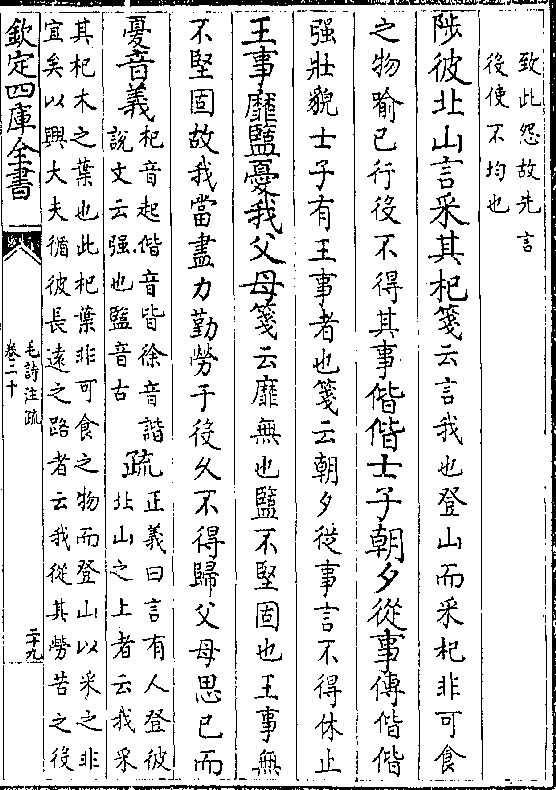 致此怨故先言
後使不均也
陟彼北山言采其杞箋云言我也登山而采杞非可食
之物喻已行役不得其事偕偕士子朝夕從事傳偕偕
强壯貌士子有王事者也箋云朝夕從事言不得休止
王事靡盬憂我父母箋云靡無也盬不堅固也王事無
不堅固故我當盡力勤勞于役久不得歸父母思已而
憂音義
杞音起偕音皆徐音諧
說文云强也盬音古
疏
正義曰言有人登彼
北山之上者云我采
其杞木之葉也此杞葉非可食之物而登山以采之非
宜矣以興大夫循彼長遠之路者云我從其勞苦之役
欽定四庫全書
毛詩注疏
卷二十
二十九